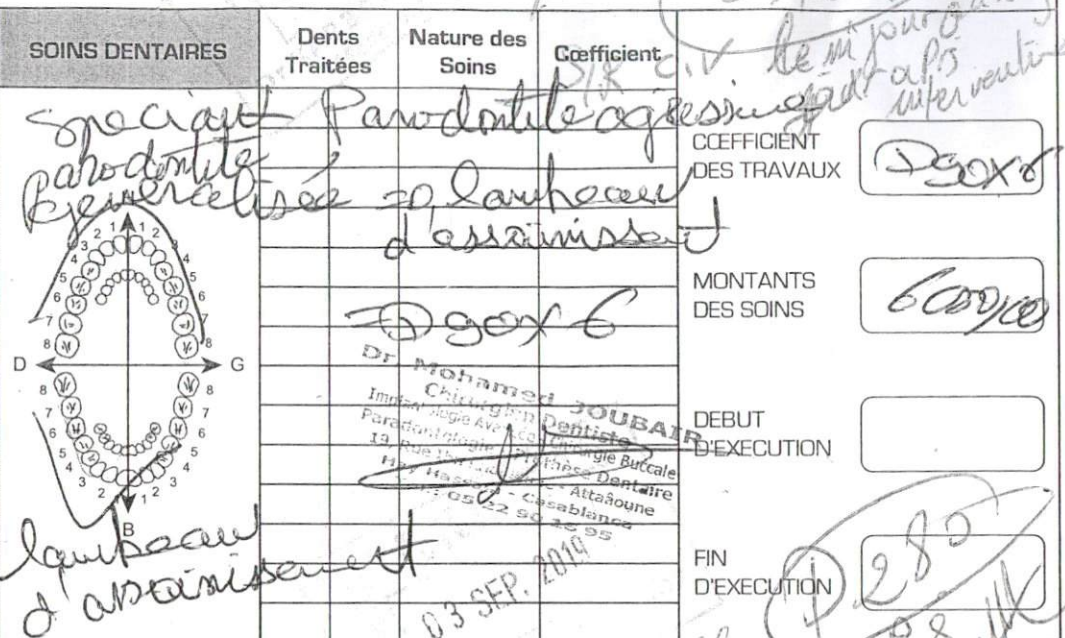 SOINS DENTAIRES
Dents Traitées
Nature des Soins
Cœfficient
le m jour
après
intervention
Parodontite agressive
parodontite
généralisée => lambeau
d'assainissement
=> D90x6
COEFFICIENT
DES TRAVAUX
D90x6
MONTANTS
DES SOINS
DEBUT
D'EXECUTION
FIN
D'EXECUTION
280
D
G
B
1 1
2 2
3 3
4 4
5 5
6 6
7 7
8 8
8 8
7 7
6 6
5 5
4 4
3 3
2 2
1 1
lambeau
d'assainissement
Dr. Mohamed JOUBAIR
Chirurgien Dentiste
Implantologie Avancée Chirurgie Buccale
Parodontologie - Prothèse Dentaire
Attaâoune
Hay Hassani - Casablanca
03 SEP. 2019